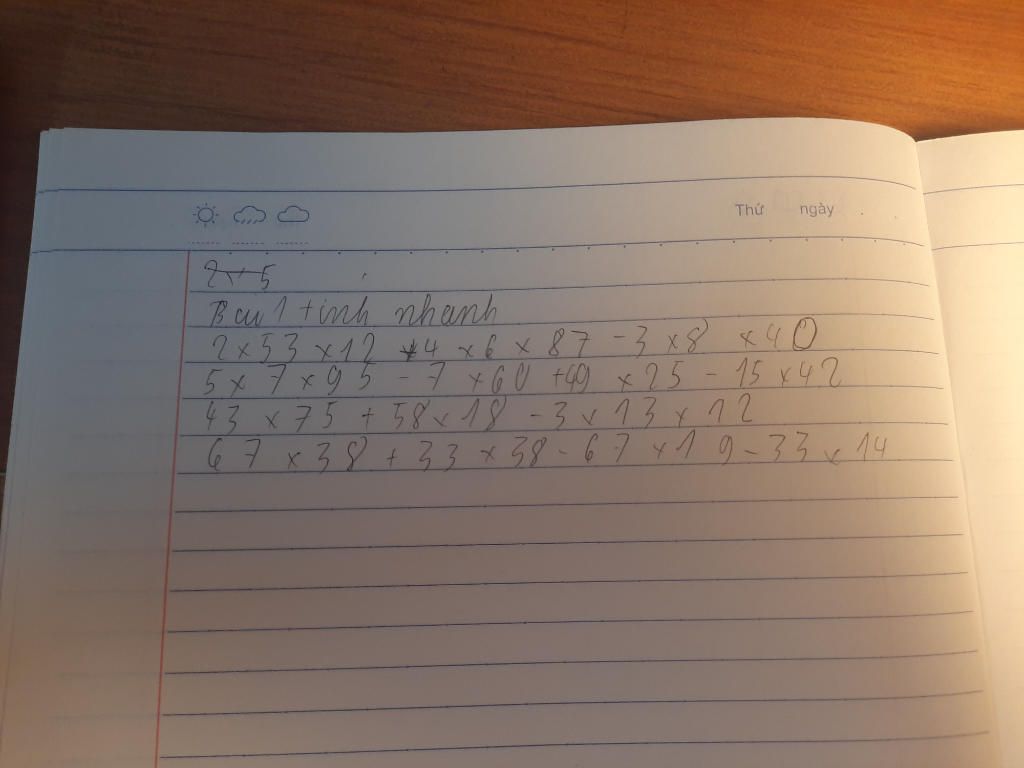 Thứ ngày
2 x 5
Bài 1 tinh nhanh
2 x 53 x 12 + 4 x 6 x 87 - 3 x 8 x 40
5 x 7 x 95 - 7 x 60 + 49 x 25 - 15 x 42
43 x 75 + 58 x 18 - 3 x 13 x 12
67 x 38 + 33 x 38 - 67 x 19 - 33 x 14